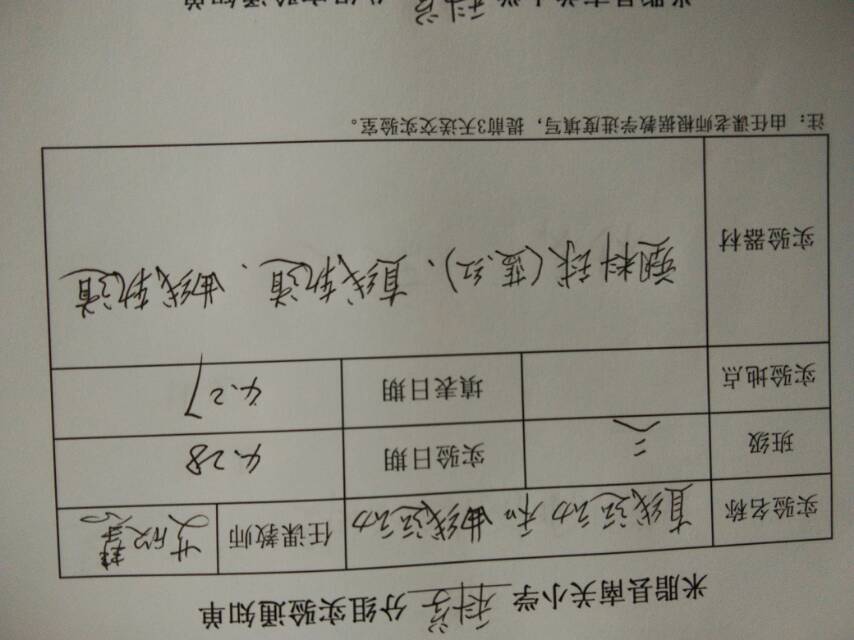 米脂县南关小学 科学 分组实验通知单
实验名称 直线运动和曲线运动 任课教师
班级 三 实验日期 4.28
实验地点 填表日期 4.27
实验器材 塑料球(蓝.红)、直线轨道、曲线轨道
注：由任课老师根据教学进度填写，提前3天送交实验室。
米脂县南关小学 科学 分组实验通知单